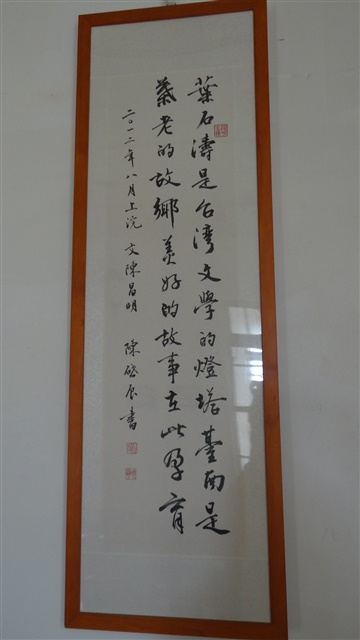 葉石濤是台灣文學的燈塔臺南是
葉老的故鄉美好的故事在此孕育
二〇一二年八月上浣 文陳昌明 陳啟
書